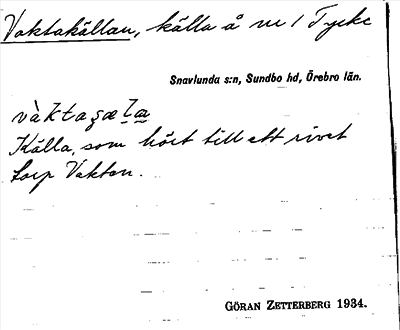 Vaktakällan, källa å nr 1 Tycke
Snavlunda s:n, Sundbo hd, Örebro län.
vàktaʂæl̲a̲
Källa, som hört till ett rivet
torp Vakten.
GÖRAN ZETTERBERG 1934.